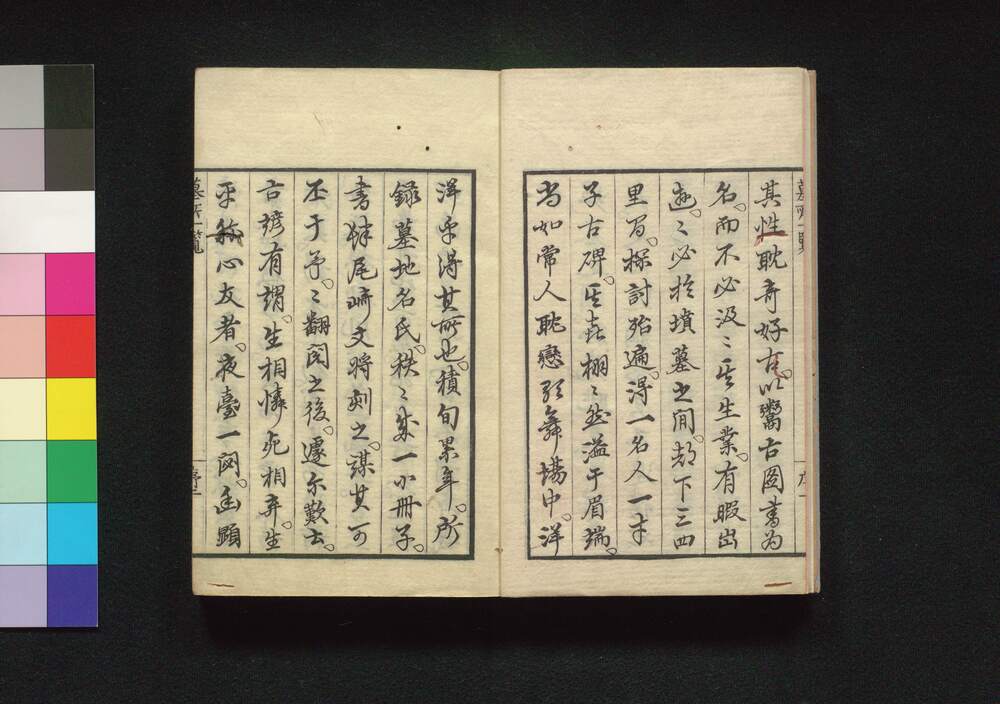 其性耽奇好古。以鬻古圖書為
名。而不必汲〻其生業。有暇出
遊。〻必於墳墓之間。都下三四
里間。探討殆遍。得一名人一才
子古碑。其喜栩〻然溢于眉端。
尚如常人耽戀歌舞場中。洋
洋乎得其所也。積旬累年。所
錄墓地名氏。秩〻成一小冊子。
書肆尾崎文將刻之。謀其可
否于予。〻翻閱之後。遽尔歎云。
古諺有謂。生相憐死相弃。生
平稱心友者。夜臺一閟。幽顕
墓所一覽